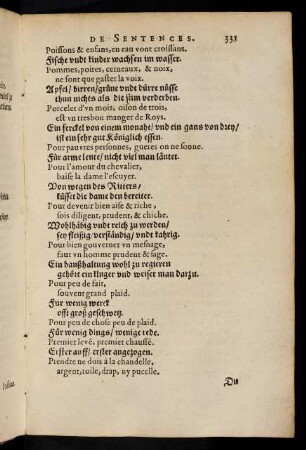 DE SENTENCES. 331
Poissons & enfans, en eau vont croissans.
Fische vndt kinder wachsen im wasser.
Pommes, poires, cerneaux, & noix,
ne font que gaster la voix.
Apfel/ birren/ grüne vndt dürre nüsse
thun nichts als die stim verderben.
Porcelet d'vn mois, oison de trois,
est vn tresbon manger de Roys.
Ein ferckel von einem monaht/ vnd ein gans von drey/
ist ein sehr gut Königlich essen.
Pour pauvres personnes, gueres on ne sonne.
Für arme leute/ nicht viel man läutet.
Pour l'amour du chevalier,
baise la dame l'escuyer.
Von wegen des Ritters/
küsset die dame den bereiter.
Pour devenir bien aise & riche,
sois diligent, prudent, & chiche.
Wohlhäbig vndt reich zu werden/
sey fleißig/ verständig/ vndt kahrig.
Pour bien gouverner vn mesnage,
faut vn homme prudent & sage.
Ein haußhaltung wohl zu regieren
gehört ein kluger vnd weiser man darzu.
Pour peu de fait,
souvent grand plaid.
Für wenig werck
offt groß geschwetz.
Pour peu de chose peu de plaid.
Für wenig dings/ wenige rede.
Premier levé, premier chaussé.
Erster auff/ erster angezogen.
Prendre ne dois à la chandelle,
argent, toile, drap, ny pucelle.
Du